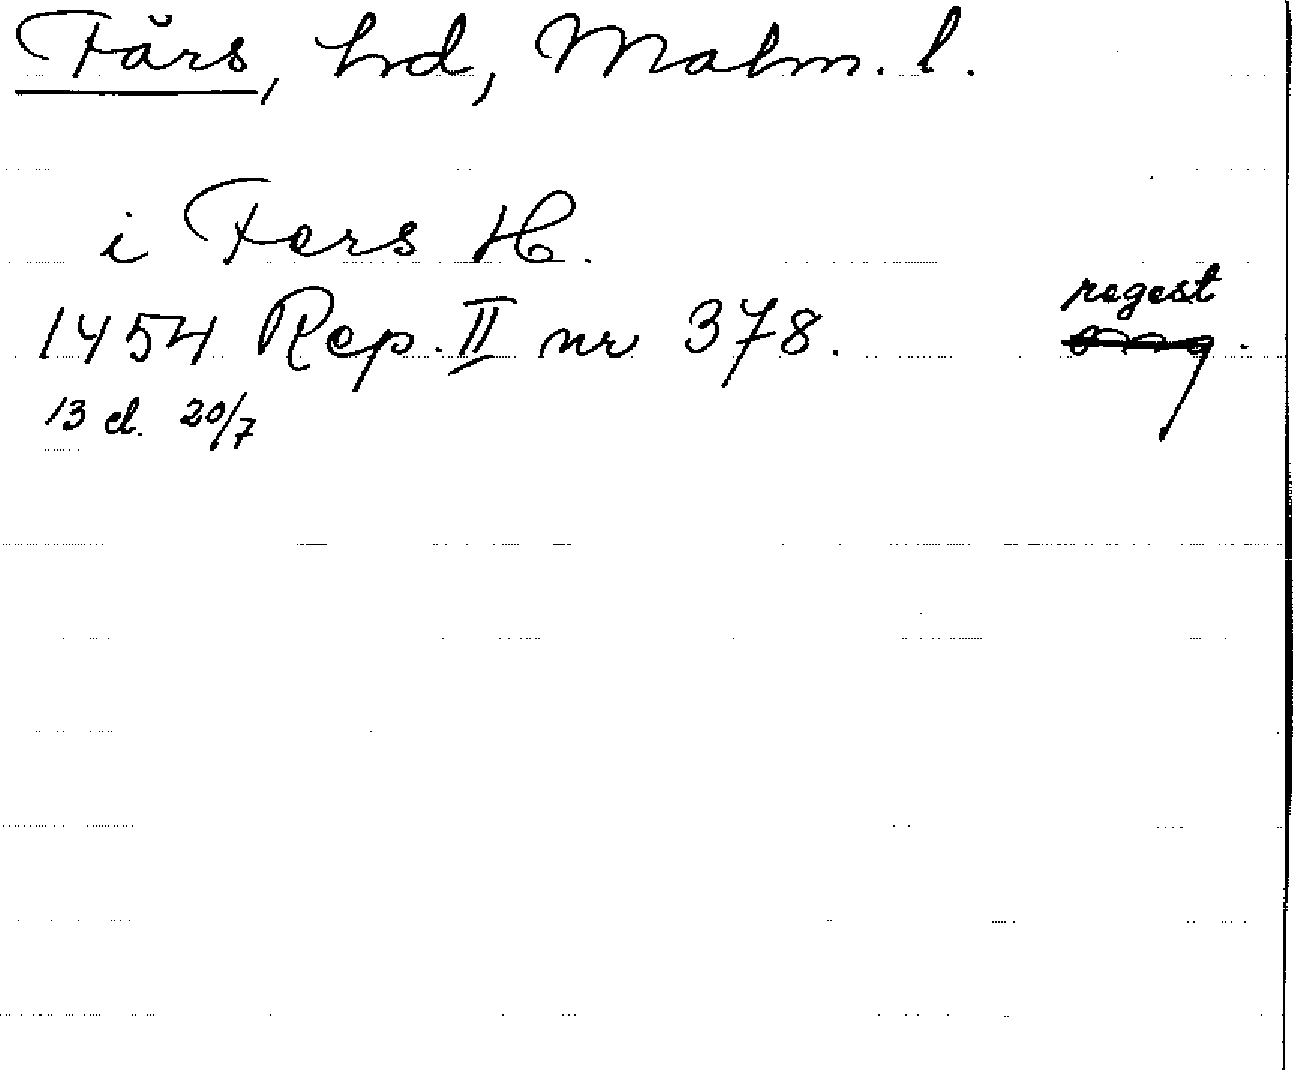 Färs, hd, Malm. l.
i Fers H.
regest
1454 Rep. II nr 378.
13 el. 20/7